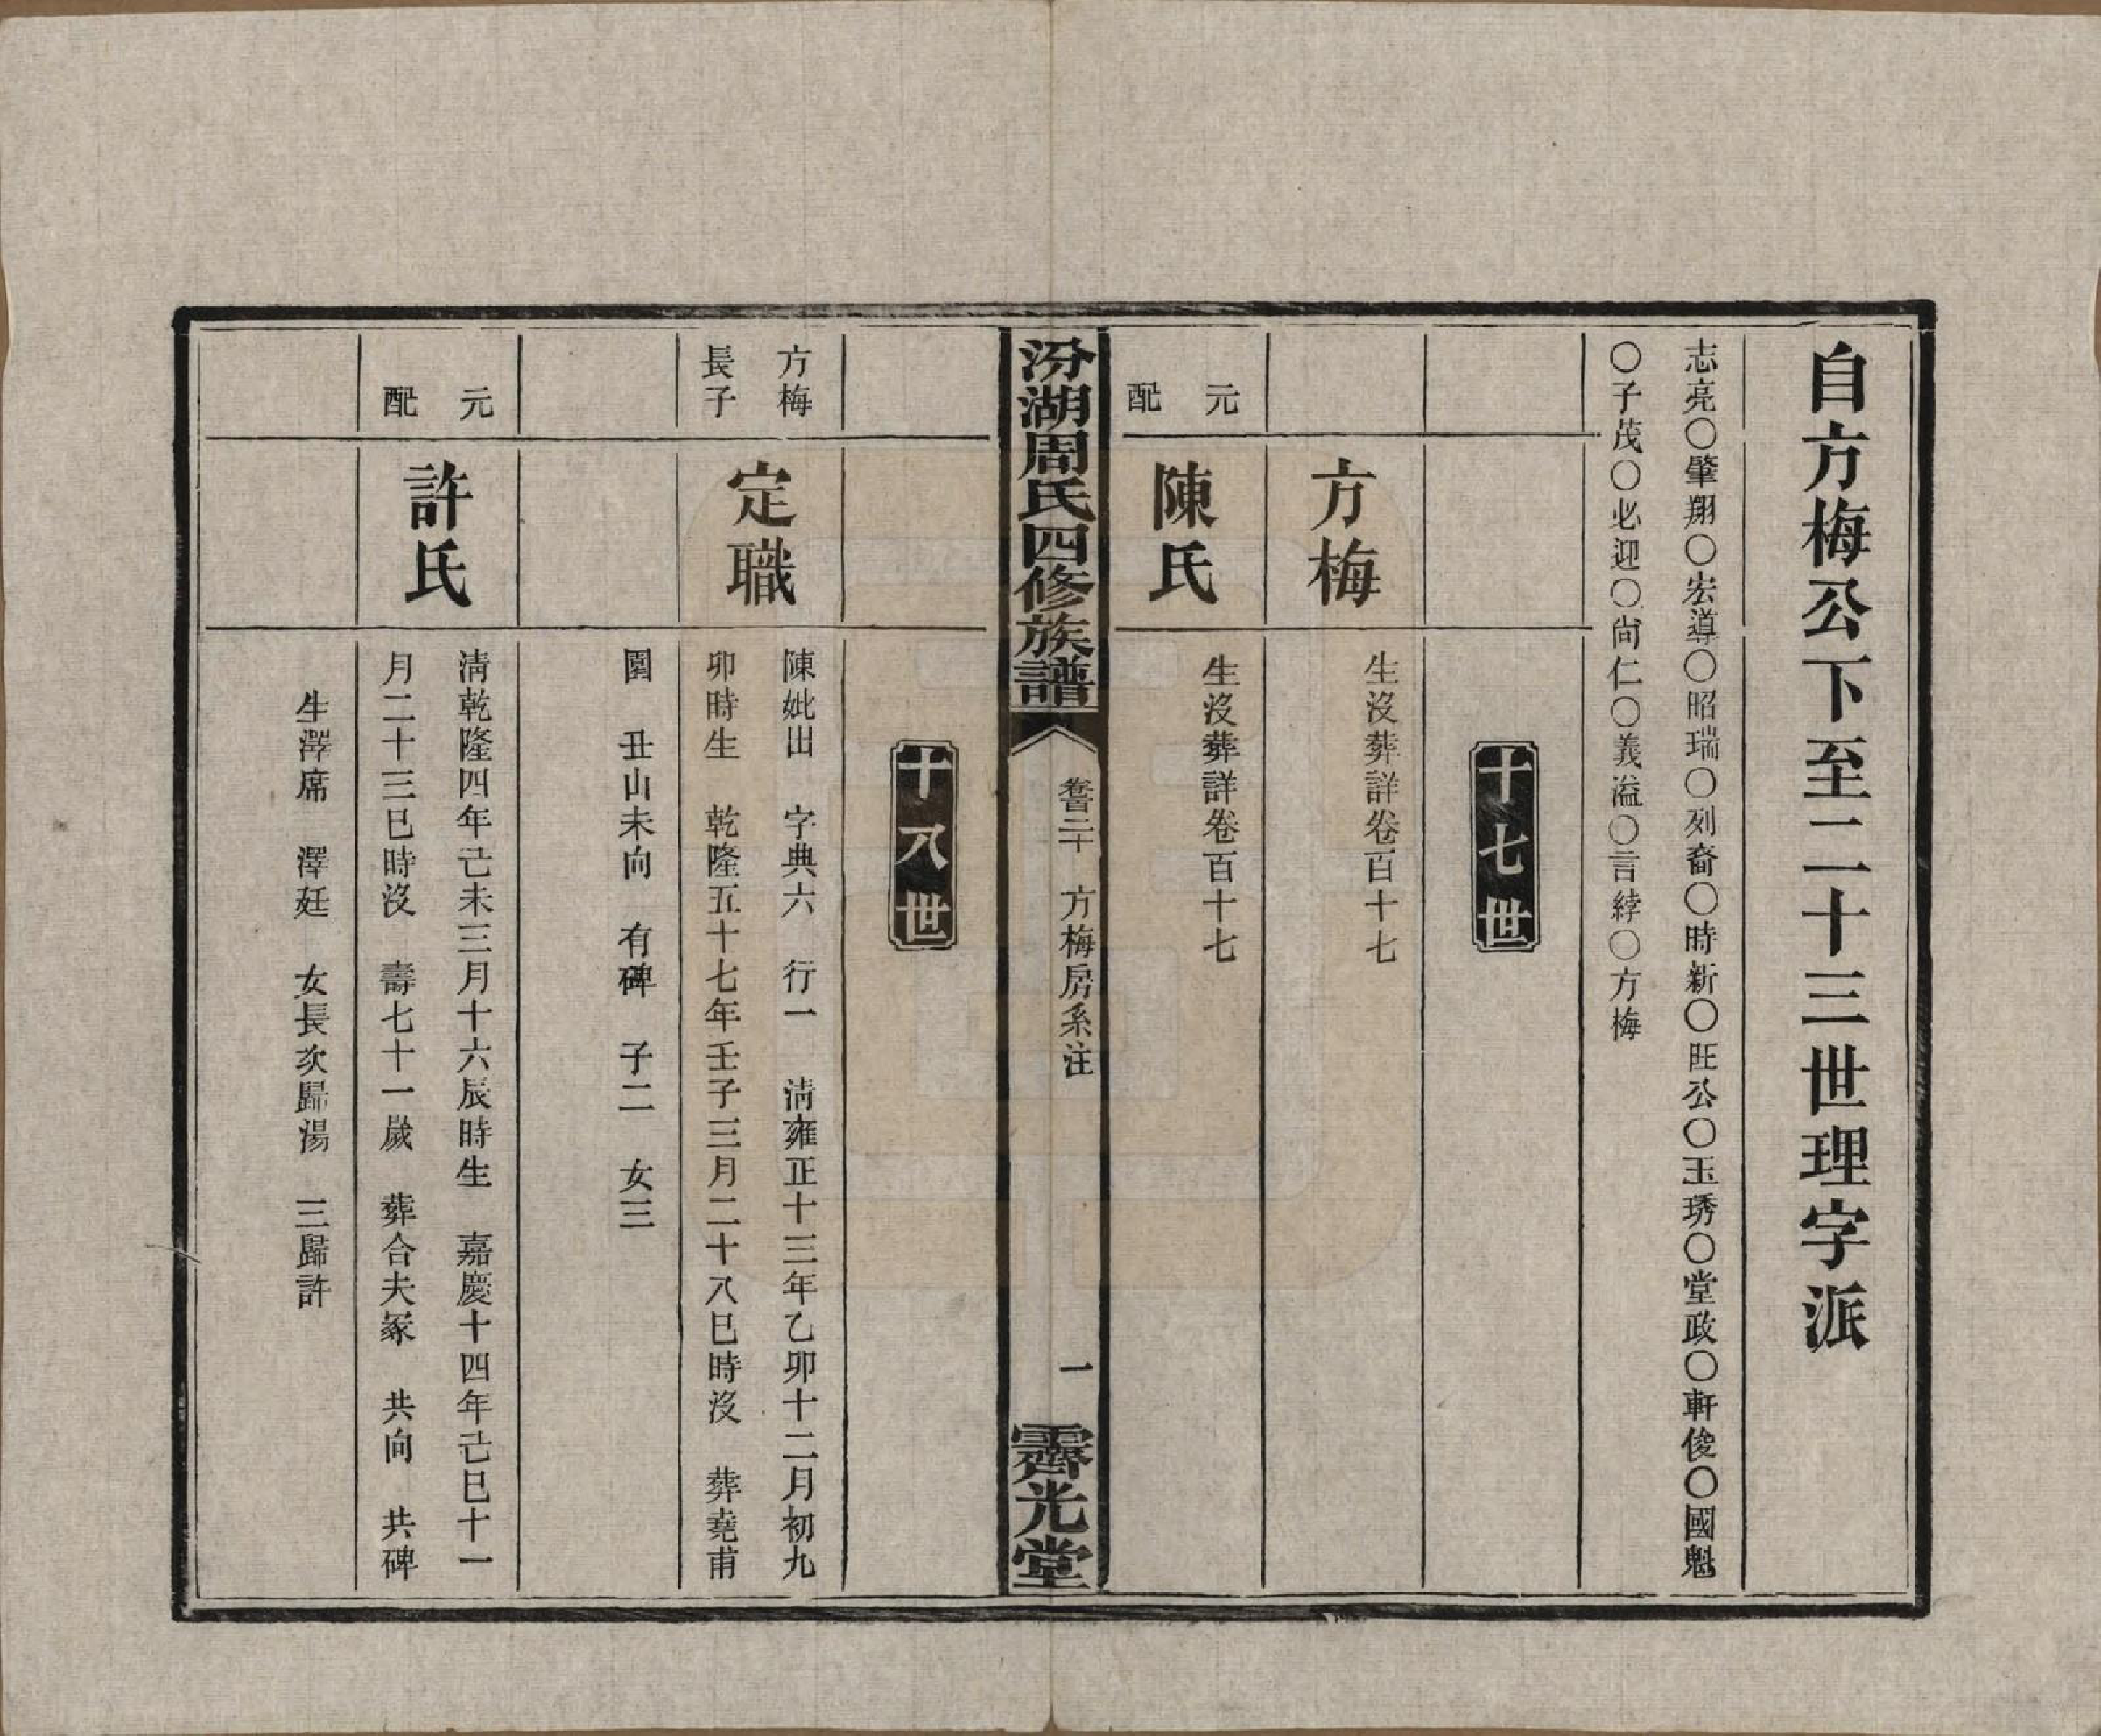 自方梅公下至二十三世理字派
志亮〇肇翔〇宏導〇昭瑞〇列裔〇時新〇旺公〇玉琇〇堂政〇軒俊〇國魁
〇子茂〇必迎〇尙仁〇義溢〇言綍〇方梅
十七世
方梅
生沒葬詳卷百十七
元配
陳氏
生沒葬詳卷百十七
汾湖周氏四修族譜
卷百二十
方梅房系注
一
霽光堂
十八世
方梅
長子
定職
陳妣出 字典六 行一 淸雍正十三年乙卯十二月初九
卯時生 乾隆五十七年壬子三月二十八巳時沒 葬堯甫
園 丑山未向 有碑 子二 女三
元配
許氏
淸乾隆四年己未三月十六辰時生 嘉慶十四年己巳十一
月二十三巳時沒 壽七十一歲 葬合夫冢 共向 共碑
生澤席 澤廷 女長次歸湯 三歸許